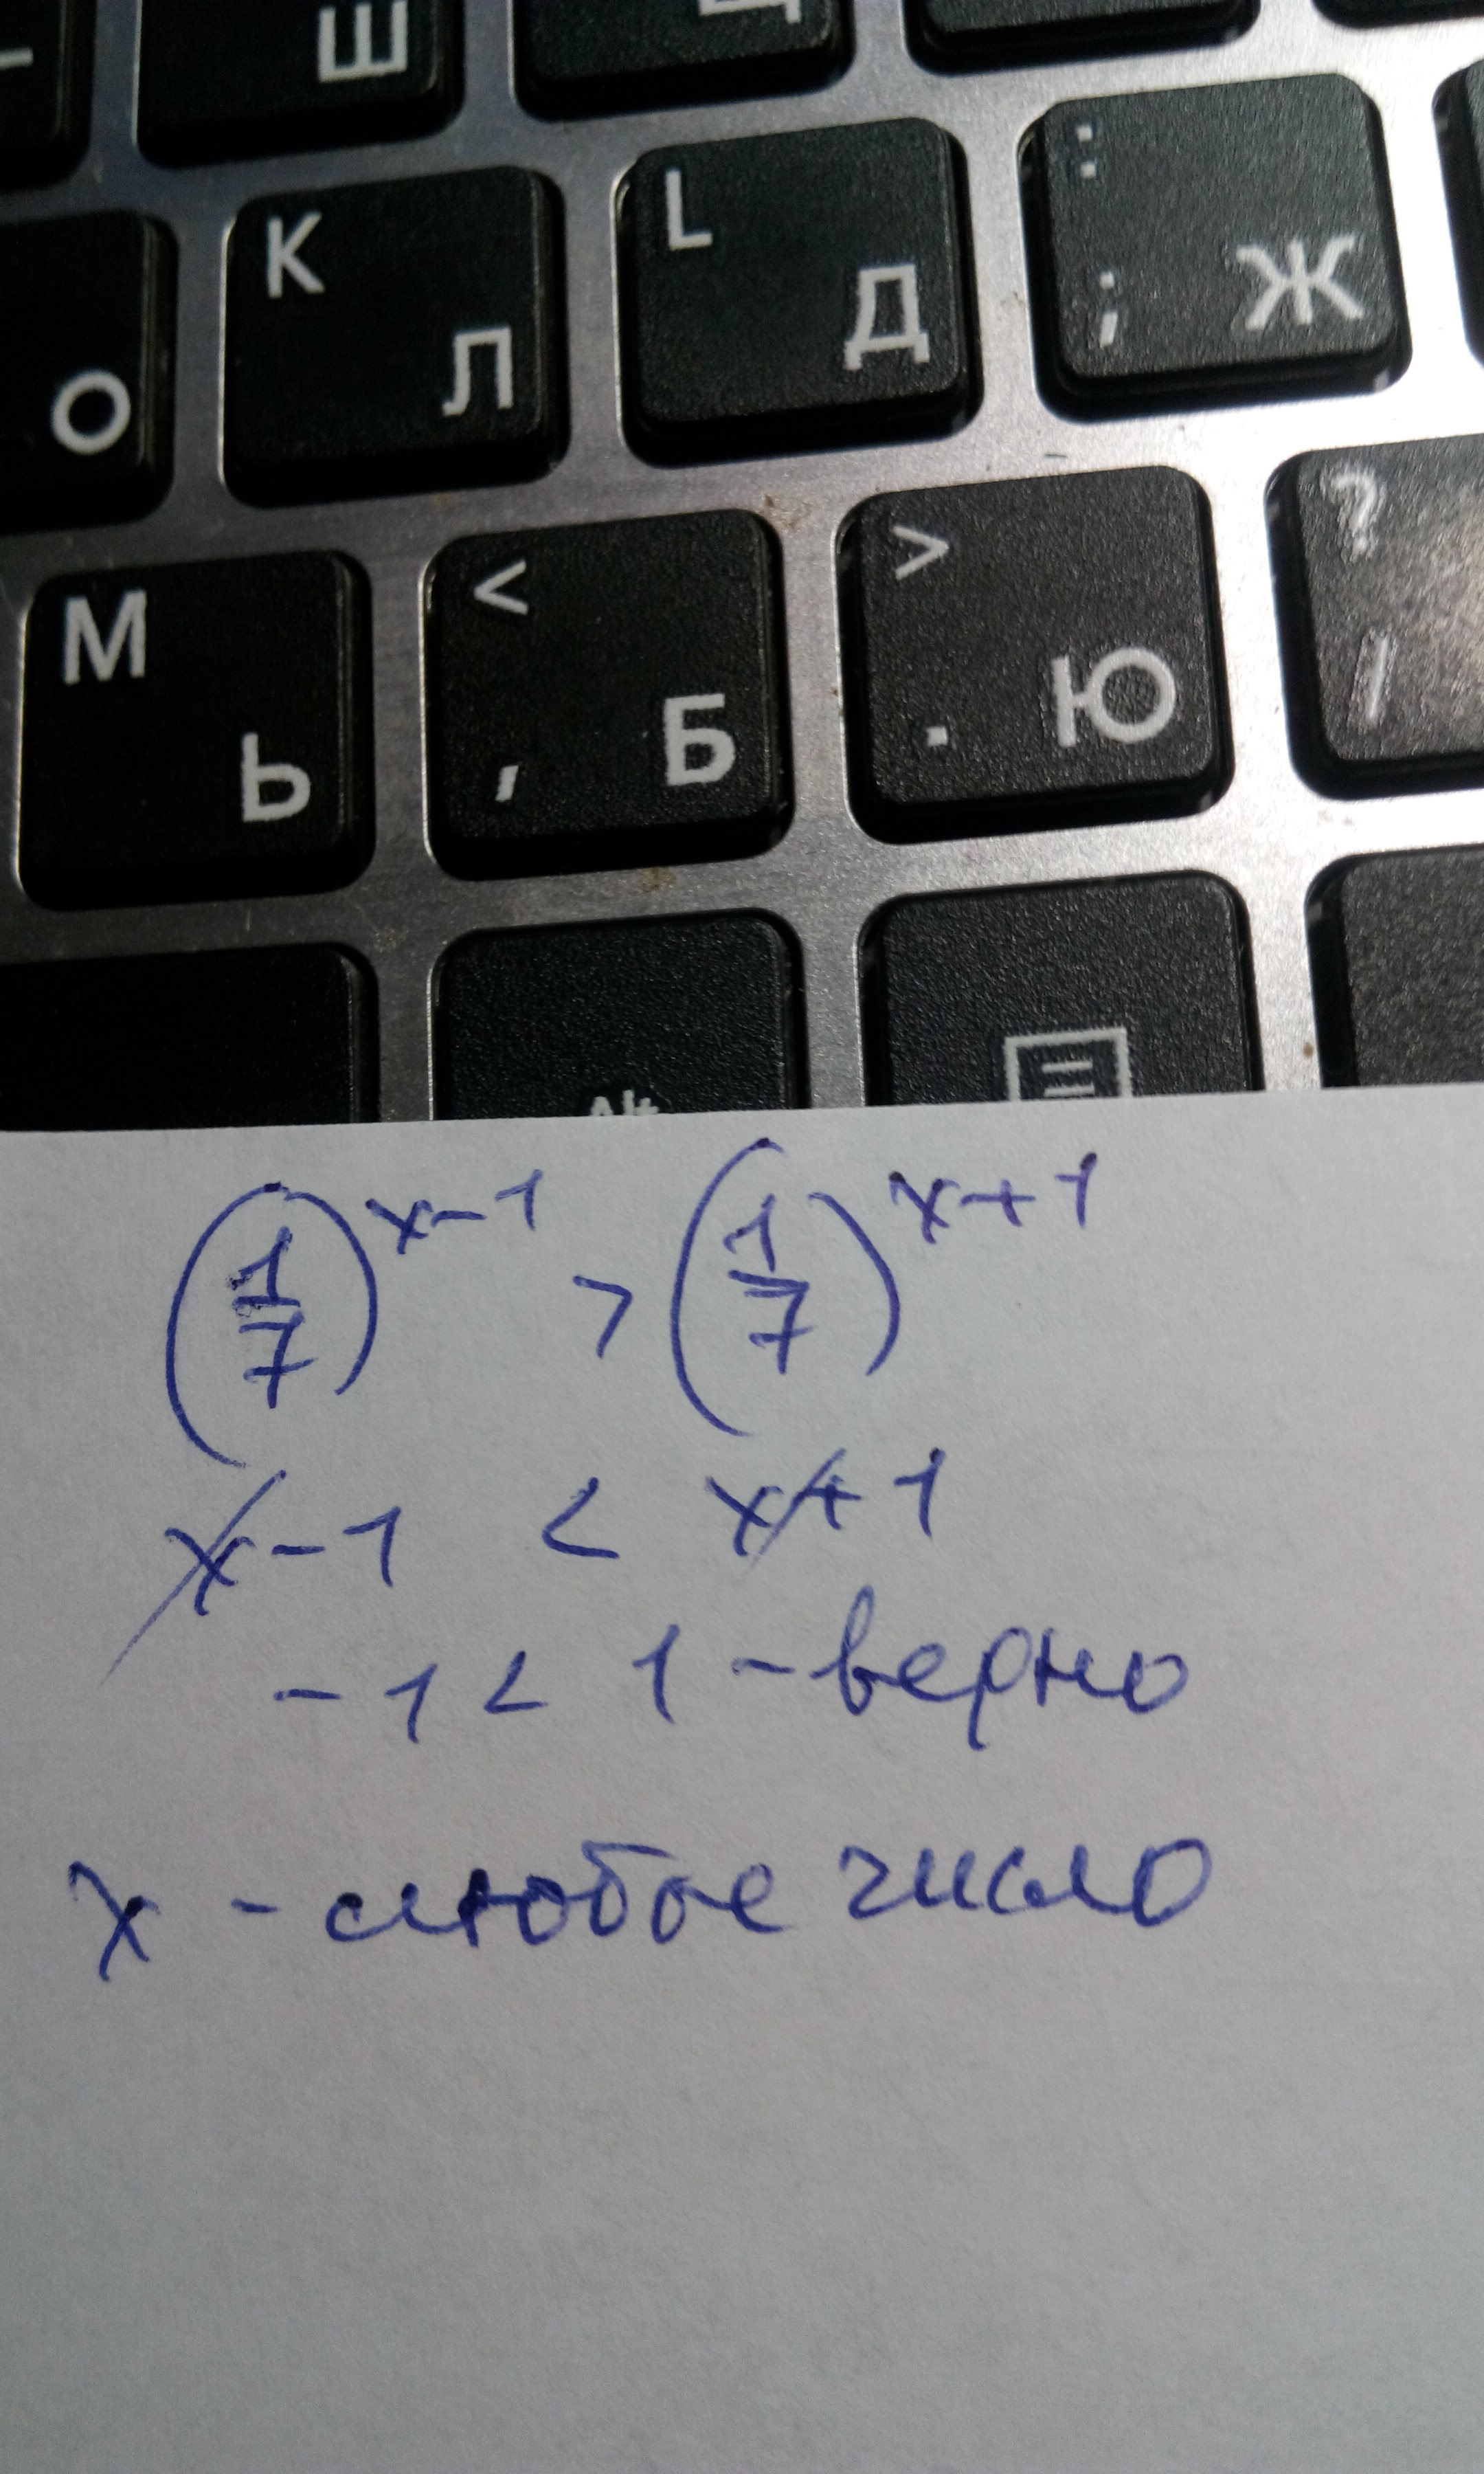 Ш Щ
О K Л L Д : ; Ж
M Ь < , Б > . Ю ? /
Alt
(1/7)^x-1 > (1/7)^x+1
x-1 < x+1
-1 < 1 - верно
x - любое число